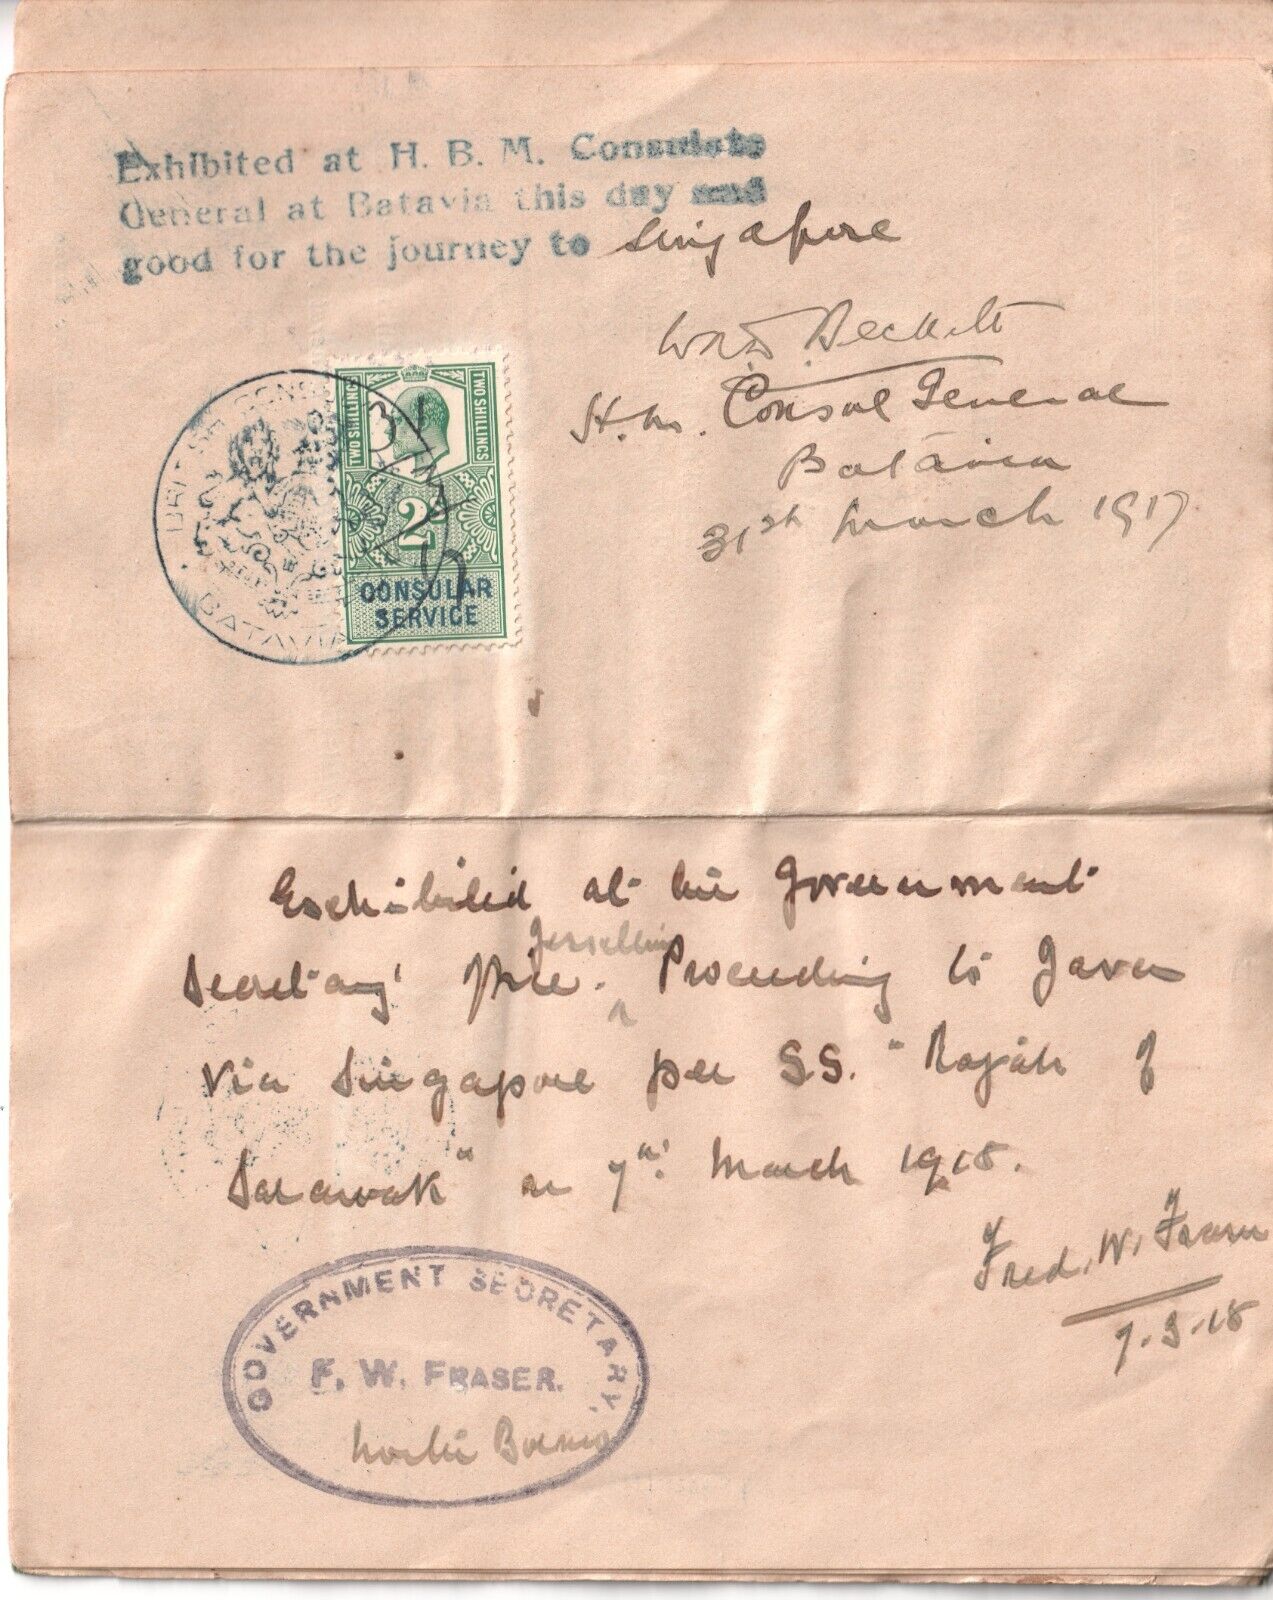 Exhibited at H. B. M. Consulate
General at Batavia this day and
good for the journey to Singapore
W.R.D. Beckett
H.M. Consul General
Batavia
31st March 1917
BRITISH CONSU
BATAVIA
TWO SHILLINGS
TWO SHILLINGS
2s
CONSULAR
SERVICE
31/3/17
Exhibited at the Government
Jesselton
Secretary's Office. ^ Proceeding to Java
via Singapore per S.S. "Rajah of
Sarawak" on 7th March 1918.
Fred. W. Fraser
7-3-18
GOVERNMENT SECRETARY,
F. W. FRASER.
North Borneo